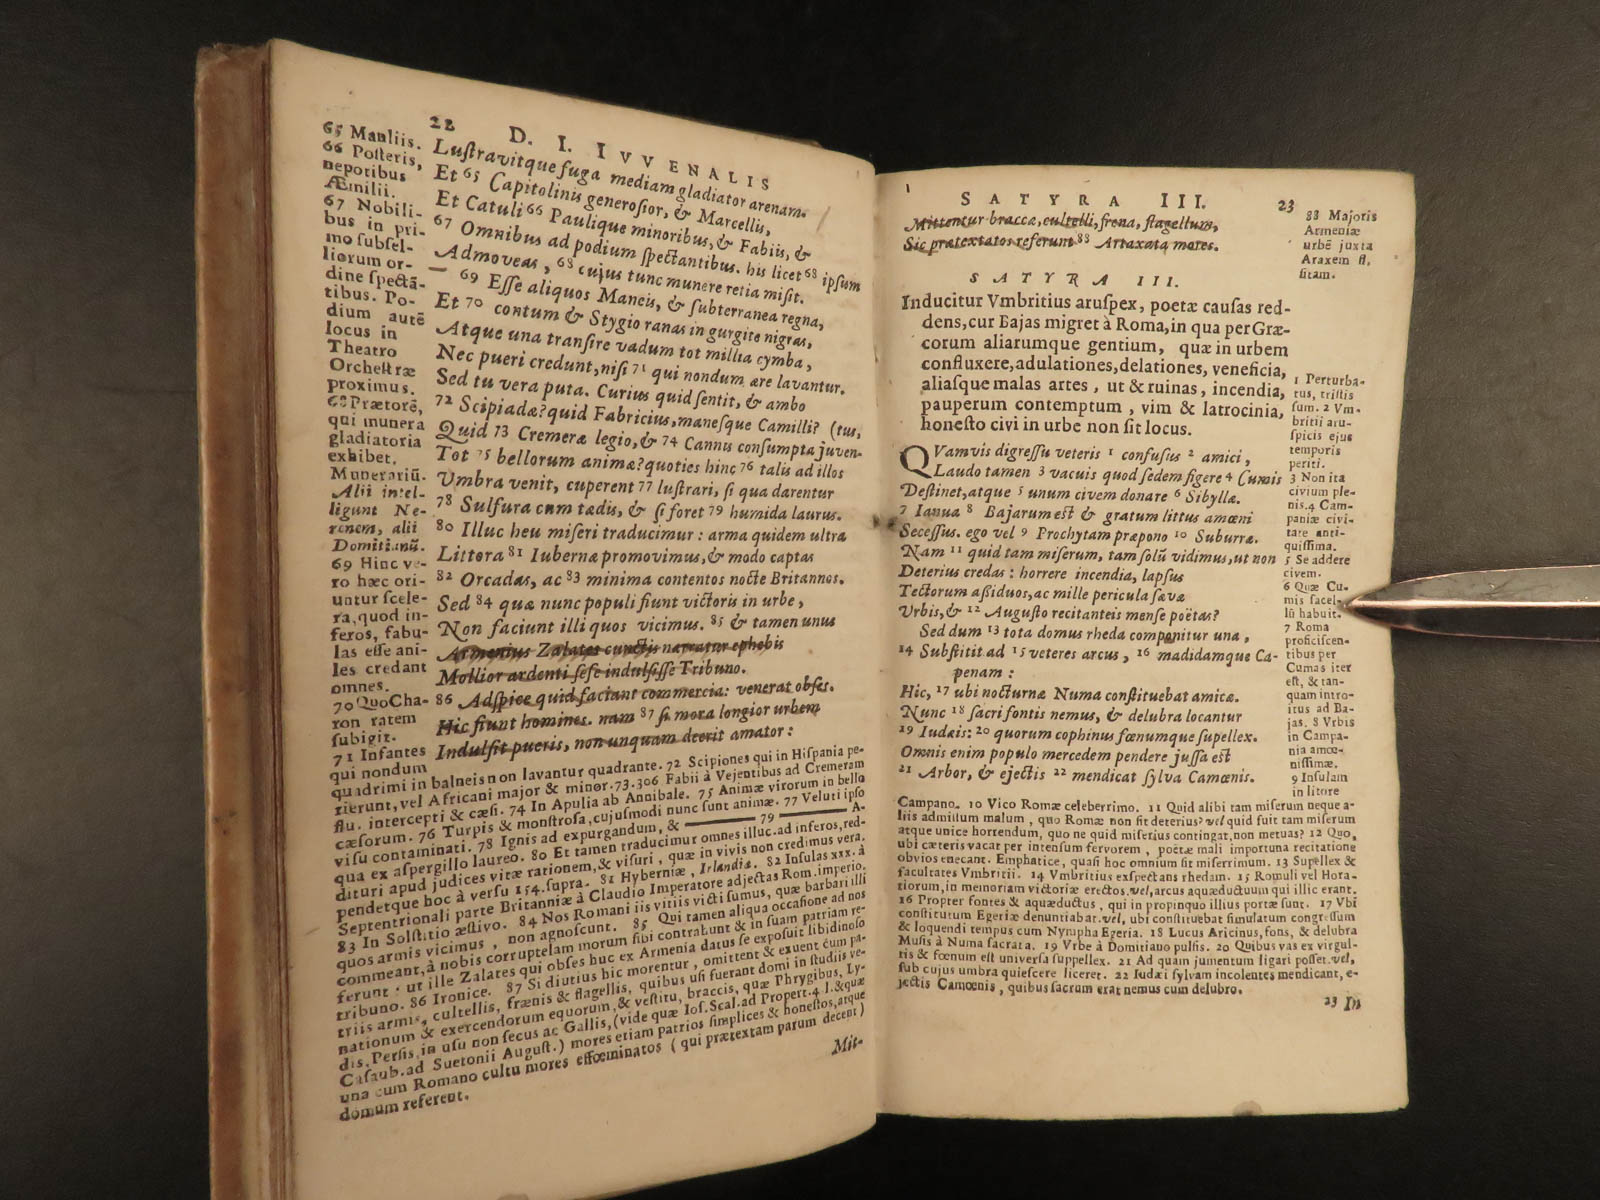 22 D. I. IVVENALIS
Luſtravitque fuga mediam gladiator arenam.
Et 65 Capitolinis generoſior, & Marcellis,
Et Catuli 66 Paulique minoribus, & Fabiis, &
67 Omnibus ad podium ſpectantibus. his licet 68 ipſum
Admoveas, 68 cujus tunc munere retia miſit.
— 69 Eſſe aliquos Maneis, & ſubterranea regna,
Et 70 contum & Stygio ranas in gurgite nigras,
Atque una tranſire vadum tot millia cymba,
Nec pueri credunt, niſi 71 qui nondum ære lavantur.
Sed tu vera puta. Curius quid ſentit, & ambo
72 Scipiadæ? quid Fabricius, maneſque Camilli? (tus,
Quid 73 Cremeræ legio, & 74 Cannis conſumpta juven-
Tot 75 bellorum animæ? quoties hinc 76 talis ad illos
Vmbra venit, cuperent 77 luſtrari, ſi qua darentur
78 Sulfura cum tædis, & ſi foret 79 humida laurus.
80 Illuc heu miſeri traducimur: arma quidem ultra
Littora 81 Iubernæ promovimus, & modo captas
82 Orcadas, ac 83 minima contentos nocte Britannos.
Sed 84 quæ nunc populi fiunt victoris in urbe,
Non faciunt illi quos vicimus. 85 & tamen unus
Armenius Zalates cunctis narratur ephebis
Mollior ardenti ſeſe indulſiſſe Tribuno.
86 Adſpice quid faciant commercia: venerat obſes.
Hic fiunt homines. nam 87 ſi mora longior urbem
Indulſit pueris, non unquam deerit amator:
65 Manliis.
66 Poſteris,
nepotibus
Æmilii.
67 Nobili-
bus in pri-
mo ſubſel-
liorum or-
dine ſpectã-
tibus. Po-
dium autē
locus in
Theatro
Orcheſtræ
proximus.
68 Prætorē,
qui munera
gladiatoria
exhibet.
Munerariū.
Alii intel-
ligunt Ne-
ronem, alii
Domitianū.
69 Hinc ve-
ro hæc ori-
untur ſcele-
ra, quod in-
feros, fabu-
las eſſe ani-
les credant
omnes.
70 Quo Cha-
ron ratem
ſubigit.
71 Infantes
qui nondum
quadrimi in balneis non lavantur quadrante. 72 Scipiones qui in Hiſpania pe-
rierunt, vel Africani major & minor. 73. 306 Fabii à Vejentibus ad Cremeram
flu. intercepti & cæſi. 74 In Apulia ab Annibale. 75 Animæ virorum in bello
cæſorum. 76 Turpis & monſtroſa, cujuſmodi nunc ſunt animæ. 77 Veluti ipſo
viſu contaminati. 78 Ignis ad expurgandum, & —— 79 —— A-
qua ex aſpergillo laureo. 80 Et tamen traducimur omnes illuc. ad inferos, red-
dituri apud judices vitæ rationem, & viſuri, quæ in vivis non credimus vera.
pendetque hoc à verſu 154. ſupra. 81 Hyberniæ, Irlandiæ. 82 Inſulas xxx. à
Septentrionali parte Britanniæ à Claudio Imperatore adjectas Rom. imperio.
83 In Solſtitio æſtivo. 84 Nos Romani iis vitiis victi ſumus, quæ barbari illi
quos armis vicimus, non agnoſcunt. 85 Qui tamen aliqua occaſione ad nos
commeant, à nobis corruptelam morum ſibi contrahunt & in ſuam patriam re-
ferunt: ut ille Zalates qui obſes huc ex Armenia datus ſe expoſuit libidinoſo
tribuno. 86 Ironice. 87 Si diutius hic morentur, omittent & exuent cum pa-
triis armis, cultellis, frænis & flagellis, quibus uſi fuerant domi in ſtudiis ve-
nationum & exercendorum equorum, & veſtitu, braccis, quæ Phrygibus, Ly-
dis, Perſis, in uſu non ſecus ac Gallis, (vide quæ Ioſ. Scal. ad Propert. 4 l. & quæ
Caſaub. ad Suetonii Auguſt.) mores etiam patrios ſimplices & honeſtos, atque
una cum Romano cultu mores effœminatos (qui prætextam parum decent)
domum referent.
Mit-
SATYRA III. 23
Mittentur braccæ, cultelli, frena, flagellum,
Sic prætextatos referunt 88 Artaxata mores.
SATYRA III.
Inducitur Vmbritius aruſpex, poetæ cauſas red-
dens, cur Bajas migret à Roma, in qua per Græ-
corum aliarumque gentium, quæ in urbem
confluxere, adulationes, delationes, veneficia,
aliaſque malas artes, ut & ruinas, incendia,
pauperum contemptum, vim & latrocinia,
honeſto civi in urbe non ſit locus.
QVamvis digreſſu veteris 1 confuſus 2 amici,
Laudo tamen 3 vacuis quod ſedem figere 4 Cumis
Deſtinet, atque 5 unum civem donare 6 Sibyllæ.
7 Ianua 8 Bajarum eſt & gratum littus amœni
Seceſſus. ego vel 9 Prochytam præpono 10 Suburræ.
Nam 11 quid tam miſerum, tam ſolū vidimus, ut non
Deterius credas: horrere incendia, lapſus
Tectorum aſsiduos, ac mille pericula ſævæ
Vrbis, & 12 Auguſto recitanteis menſe poëtas?
Sed dum 13 tota domus rheda componitur una,
14 Subſtitit ad 15 veteres arcus, 16 madidamque Ca-
penam:
Hic, 17 ubi nocturnæ Numa conſtituebat amicæ.
Nunc 18 ſacri fontis nemus, & delubra locantur
19 Iudæis: 20 quorum cophinus fœnumque ſupellex.
Omnis enim populo mercedem pendere juſſa eſt
21 Arbor, & ejectis 22 mendicat ſylva Camœnis.
88 Majoris
Armeniæ
urbē juxta
Araxem fl.
ſitam.
1 Perturba-
tus, triſtis
ſum. 2 Vm-
britii aru-
ſpicis ejus
temporis
periti.
3 Non ita
civium ple-
nis. 4 Cam-
paniæ civi-
tate anti-
quiſſima.
5 Se addere
civem.
6 Quæ Cu-
mis ſacel-
lū habuit.
7 Roma
proficiſcen-
tibus per
Cumas iter
eſt, & tan-
quam intro-
itus ad Ba-
jas. 8 Vrbis
in Campa-
nia amœ-
niſſimæ.
9 Inſulam
in litore
Campano. 10 Vico Romæ celeberrimo. 11 Quid alibi tam miſerum neque a-
liis admiſtum malum, quo Romæ non ſit deterius? vel quid fuit tam miſerum
atque unice horrendum, quo ne quid miſerius contingat, non metuas? 12 Quo,
ubi cæteris vacat per intenſum fervorem, poëtæ mali importuna recitatione
obvios enecant. Emphatice, quaſi hoc omnium ſit miſerrimum. 13 Supellex &
facultates Vmbritii. 14 Vmbritius exſpectans rhedam. 15 Romuli vel Hora-
tiorum, in memoriam victoriæ erectos. vel, arcus aquæductuum qui illic erant.
16 Propter fontes & aquæductus, qui in propinquo illius portæ ſunt. 17 Vbi
conſtitutum Egeriæ denuntiabat. vel, ubi conſtituebat ſimulatum congreſſum
& loquendi tempus cum Nympha Egeria. 18 Lucus Aricinus, fons, & delubra
Muſis à Numa ſacrata. 19 Vrbe à Domitiano pulſis. 20 Quibus vas ex virgul-
tis & fœnum eſt univerſa ſuppellex. 21 Ad quam jumentum ligari poſſet. vel,
ſub cujus umbra quieſcere liceret. 22 Iudæi ſylvam incolentes mendicant, e-
jectis Camœnis, quibus ſacrum erat nemus cum delubro.
23 In